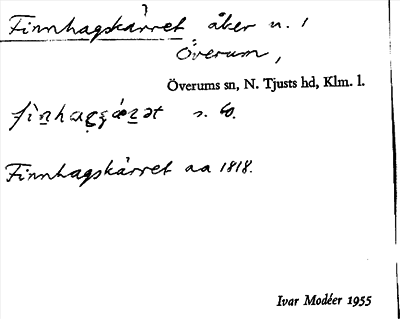 Finnhagskärret åker n. 1
Överum,
Överums sn, N. Tjusts hd, Klm. l.
s. 60.
Finnhagskärret aa 1818.
Ivar Modéer 1955